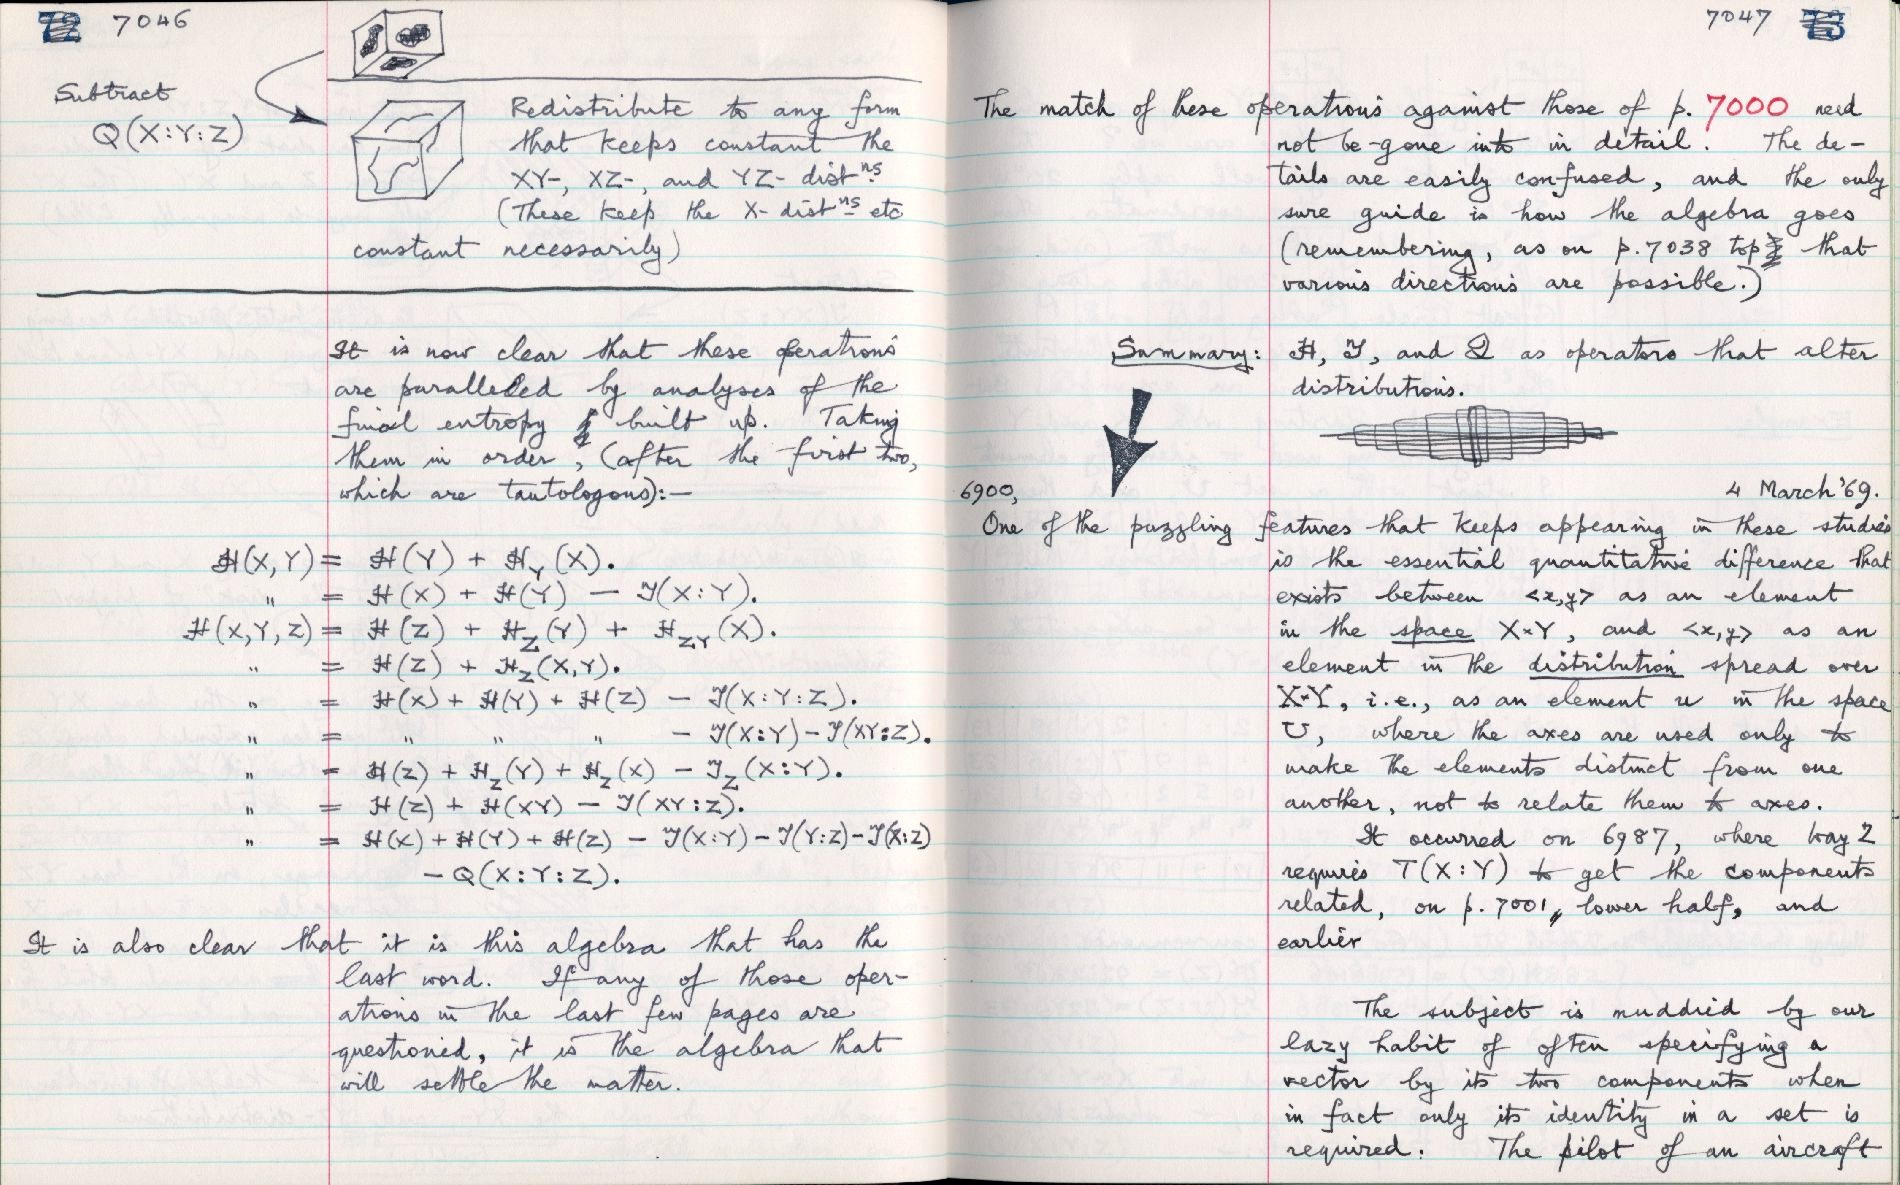 72 7046
Subtract
Q(X:Y:Z)
Redistribute to any form
that keeps constant the
XY-, XZ-, and YZ- distns
(These keep the X- distns etc
constant necessarily)
It is now clear that these operations
are paralleled by analyses of the
final entropy built up. Taking
them in order, (after the first two,
which are tautologous):—
H(X,Y) = H(Y) + H_Y(X).
" = H(X) + H(Y) − T(X:Y).
H(X,Y,Z) = H(Z) + H_Z(Y) + H_ZY(X).
" = H(Z) + H_Z(X,Y).
" = H(X) + H(Y) + H(Z) − T(X:Y:Z).
" = " " " − T(X:Y) − T(XY:Z).
" = H(Z) + H_Z(Y) + H_Z(X) − T_Z(X:Y).
" = H(Z) + H(XY) − T(XY:Z).
" = H(X) + H(Y) + H(Z) − T(X:Y) − T(Y:Z) − T(X:Z)
− Q(X:Y:Z).
It is also clear that it is this algebra that has the
last word. If any of those oper-
ations in the last few pages are
questioned, it is the algebra that
will settle the matter.
7047 73
The match of these operations against those of p. 7000 need
not be gone into in detail. The de-
tails are easily confused, and the only
sure guide is how the algebra goes
(remembering, as on p.7038 top that
various directions are possible.)
Summary: H, T, and Q as operators that alter
distributions.
6900, 4 March '69.
One of the puzzling features that keeps appearing in these studies
is the essential quantitative difference that
exists between <x,y> as an element
in the space X×Y, and <x,y> as an
element in the distribution spread over
X×Y, i.e., as an element u in the space
U, where the axes are used only to
make the elements distinct from one
another, not to relate them to axes.
It occurred on 6987, where Way 2
requires T(X:Y) to get the components
related, on p.7001, lower half, and
earlier
The subject is muddied by our
lazy habit of often specifying a
vector by its two components when
in fact only its identity in a set is
required. The pilot of an aircraft